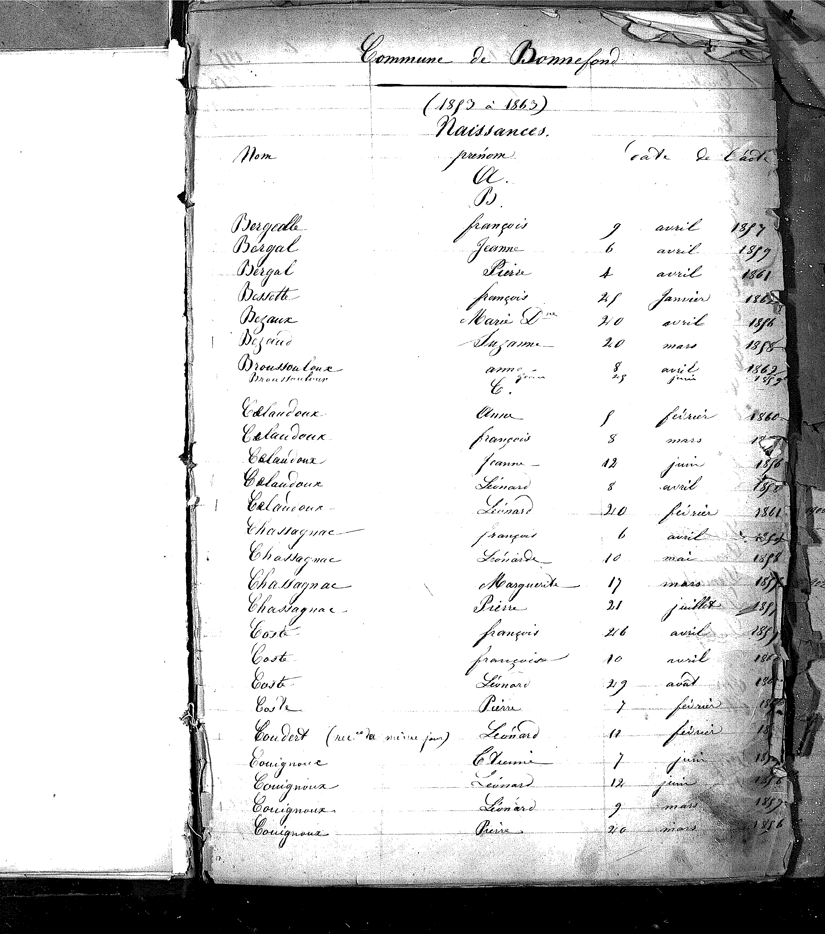 Commune de Bonnefond
(1853 à 1863)
Naissances.
Nom prénom date de l'acte
A.
B.
Bergealle françois 9 avril 1857
Bergal Jeanne 6 avril 1859
Bergal Pierre 4 avril 1861
Bessette françois 25 Janvier
Bezaux Marie Dne 20 avril 1856
Bezaud Suzanne 20 mars 1858
Broussouloux anne 8 avril 1862
Broussouloux 25 juin 1859
C.
Calaudoux Anne 5 février 1860
Calaudoux françois 8 mars
Calaudoux Jeanne 12 juin 1856
Calaudoux Léonard 8 avril
Calaudoux Léonard 20 février 1861
Chassagnac françois 6 avril
Chassagnac Léonarde 10 mai 1858
Chassagnac Marguerite 17 mars
Chassagnac Pierre 21 juillet
Coste françois 26 avril 1859
Coste françoise 10 avril
Coste Léonard 29 août
Coste Pierre 7 février
Coudert même jour) Léonard 11 février
Couignoux Etienne 7 juin
Couignoux Léonard 12 juin 1856
Couignoux Léonard 9 mars 1859
Couignoux Pierre 20 mars 1856